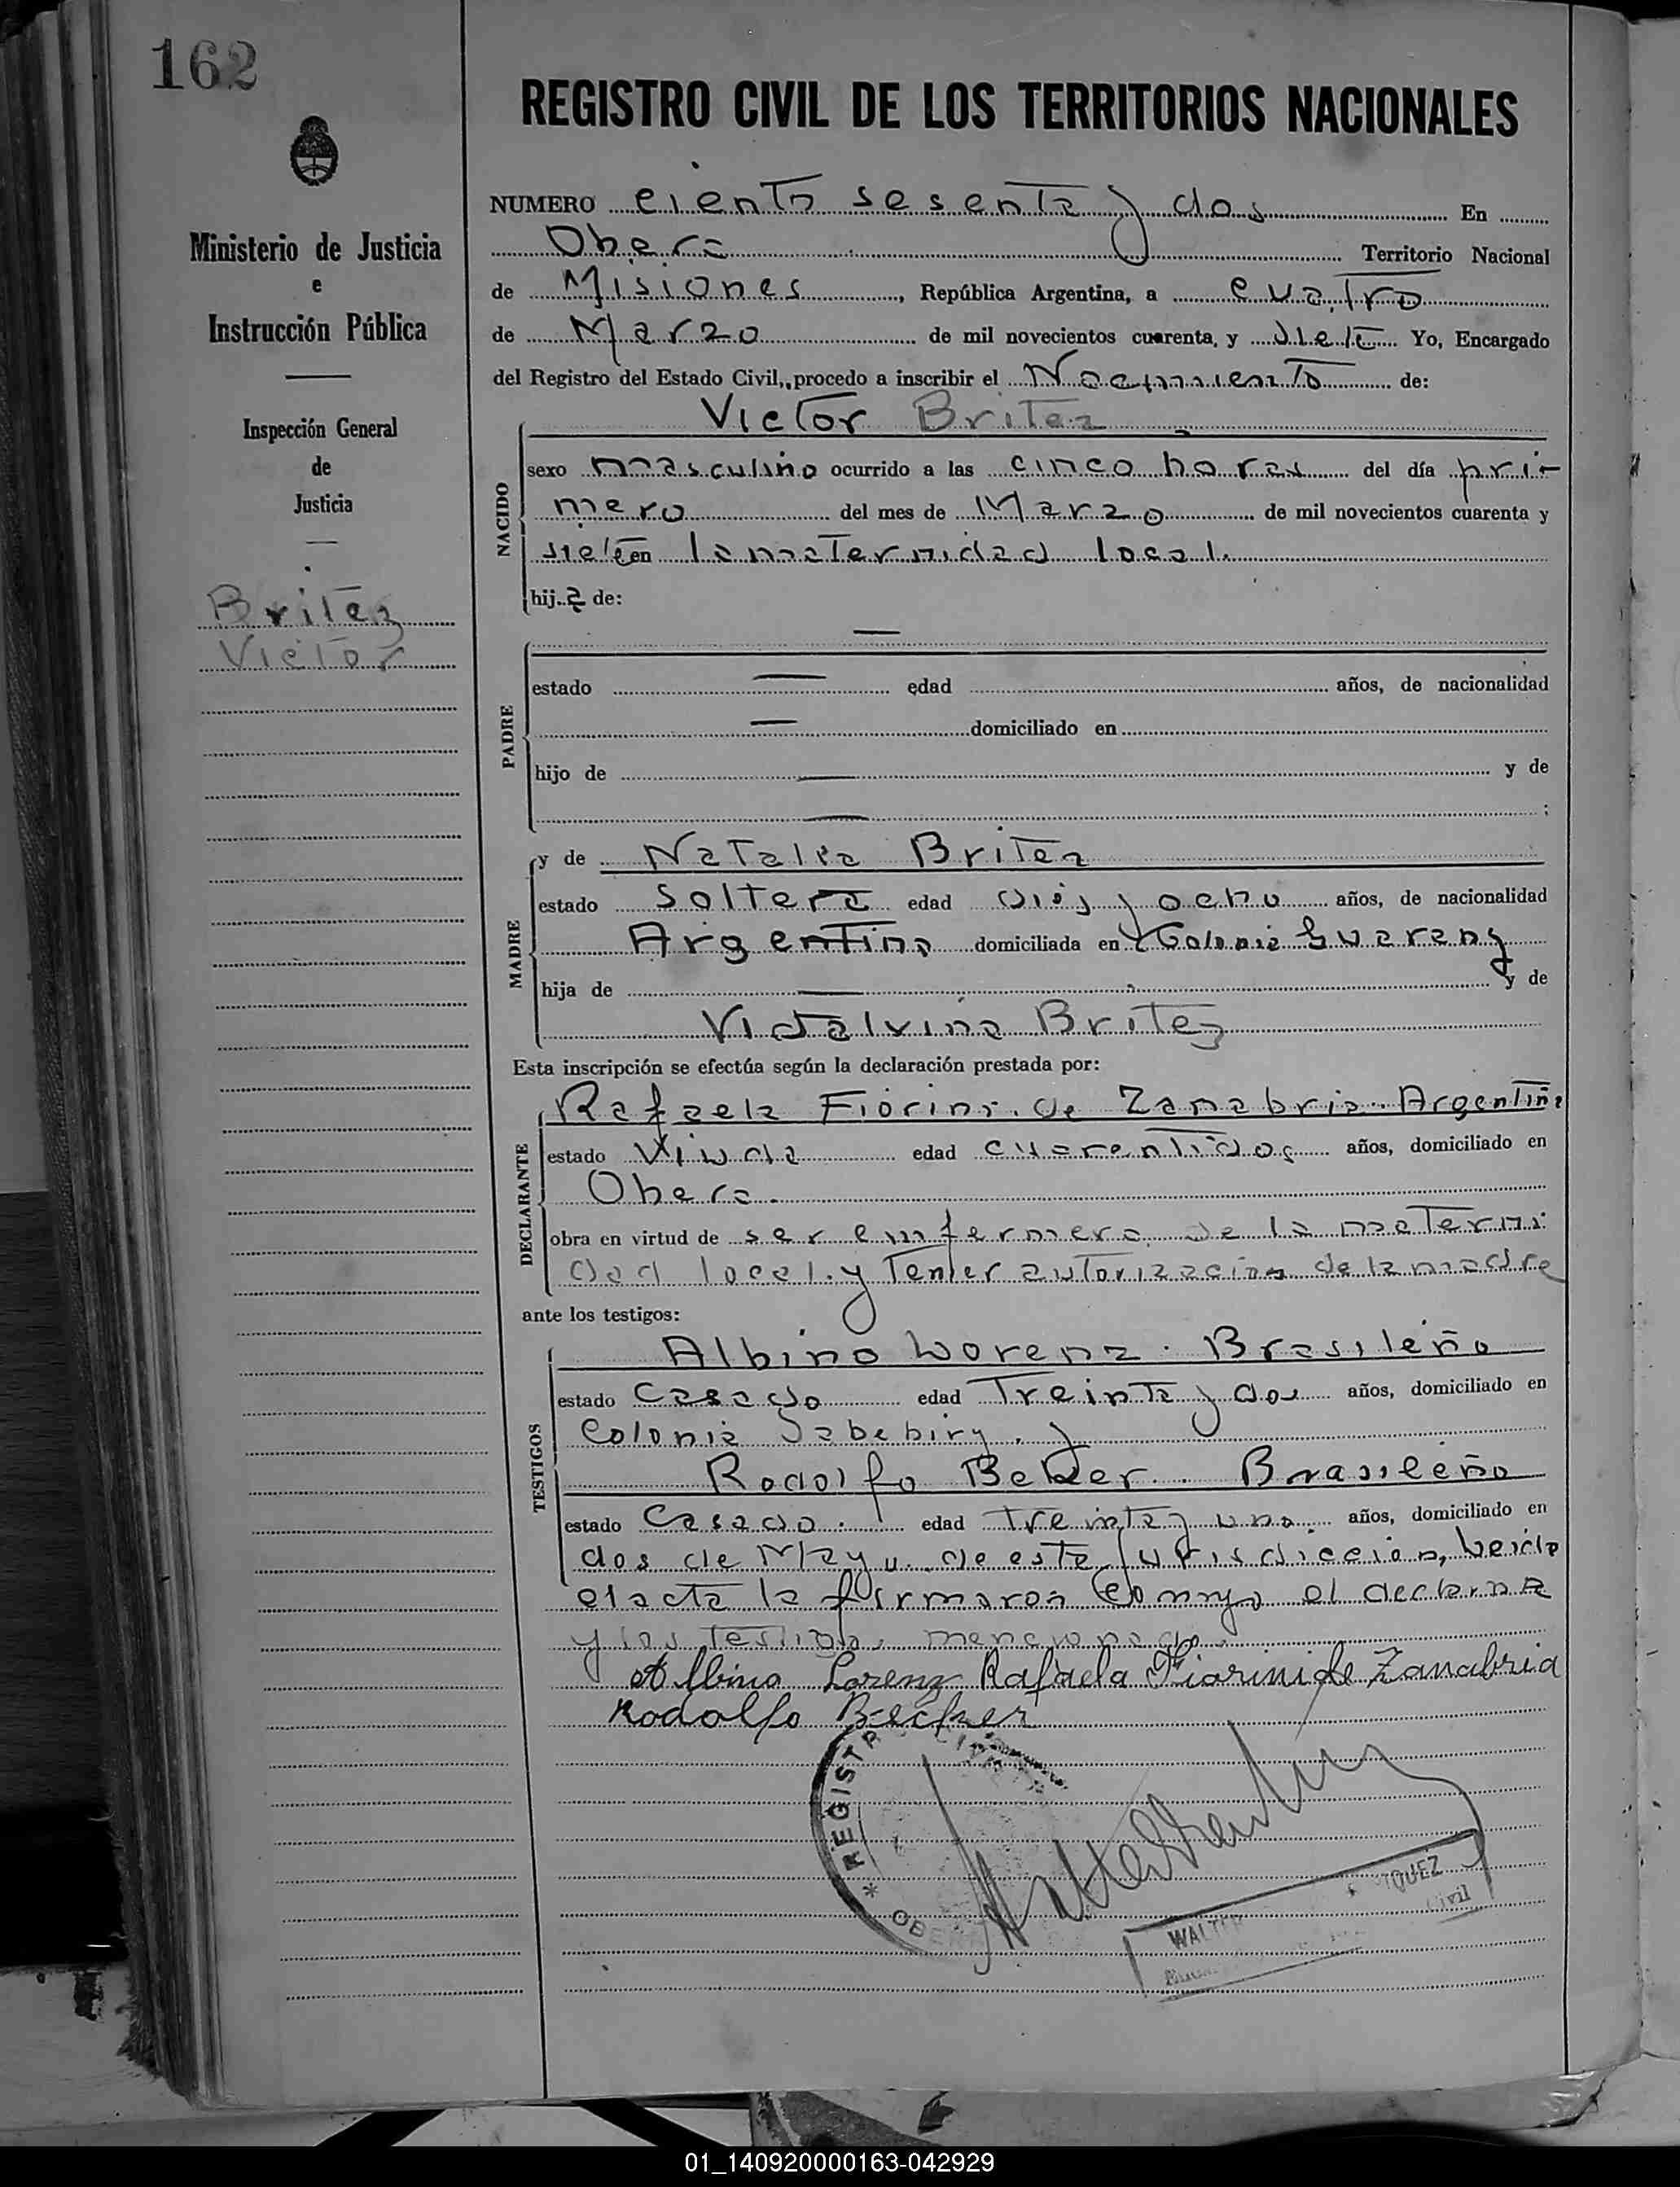 162
REGISTRO CIVIL DE LOS TERRITORIOS NACIONALES
Ministerio de Justicia
e
Instrucción Pública
Inspección General
de
Justicia
Britez
Victor
NUMERO ciento sesenta y dos En
Obera Territorio Nacional
de Misiones, República Argentina, a cuatro
de Marzo de mil novecientos cuarenta, y siete Yo, Encargado
del Registro del Estado Civil, procedo a inscribir el Nacimiento de:
Victor Britez
NACIDO
sexo masculino ocurrido a las cinco horas del día pri-
mero del mes de Marzo de mil novecientos cuarenta y
siete en la maternidad local.
hij de:
PADRE
estado edad años, de nacionalidad
domiciliado en
hijo de y de
;
MADRE
y de Natalia Britez
estado soltera edad dies y ocho años, de nacionalidad
Argentina domiciliada en Colonia Guarany
hija de y de
Vidalvina Britez
Esta inscripción se efectúa según la declaración prestada por:
DECLARANTE
Rafaela Fiorini de Zanabria. Argentina
estado Viuda edad cuarentidos años, domiciliado en
Obera.
obra en virtud de ser enfermera de la materni
dad local. y Tenler autorizacion de la madre
ante los testigos:
TESTIGOS
Albino Lorenz. Brasileño
estado Casado edad Treinta y dos años, domiciliado en
Colonia Yabebiry. y
Rodolfo Beker. Brasileño
estado Casado. edad treinta y uno. años, domiciliado en
dos de Mayo. de esta Jurisdiccion, Leida
el acta la firmaron Conmigo el
y los testigos mencionados.
Albino Lorenz Rafaela Fiorini de Zanabria
Rodolfo Becker
* REGISTR CIVIL
OBERA
WALTER QUEZ
Civil
01_140920000163-042929